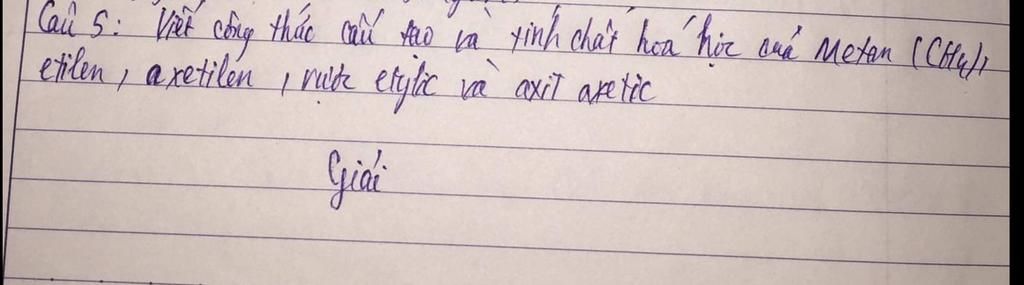 Câu 5: Viết công thức cấu tạo và tính chất hoá học của Metan (CH4),
etilen, axetilen, rượu etylic và axit axetic
Giải